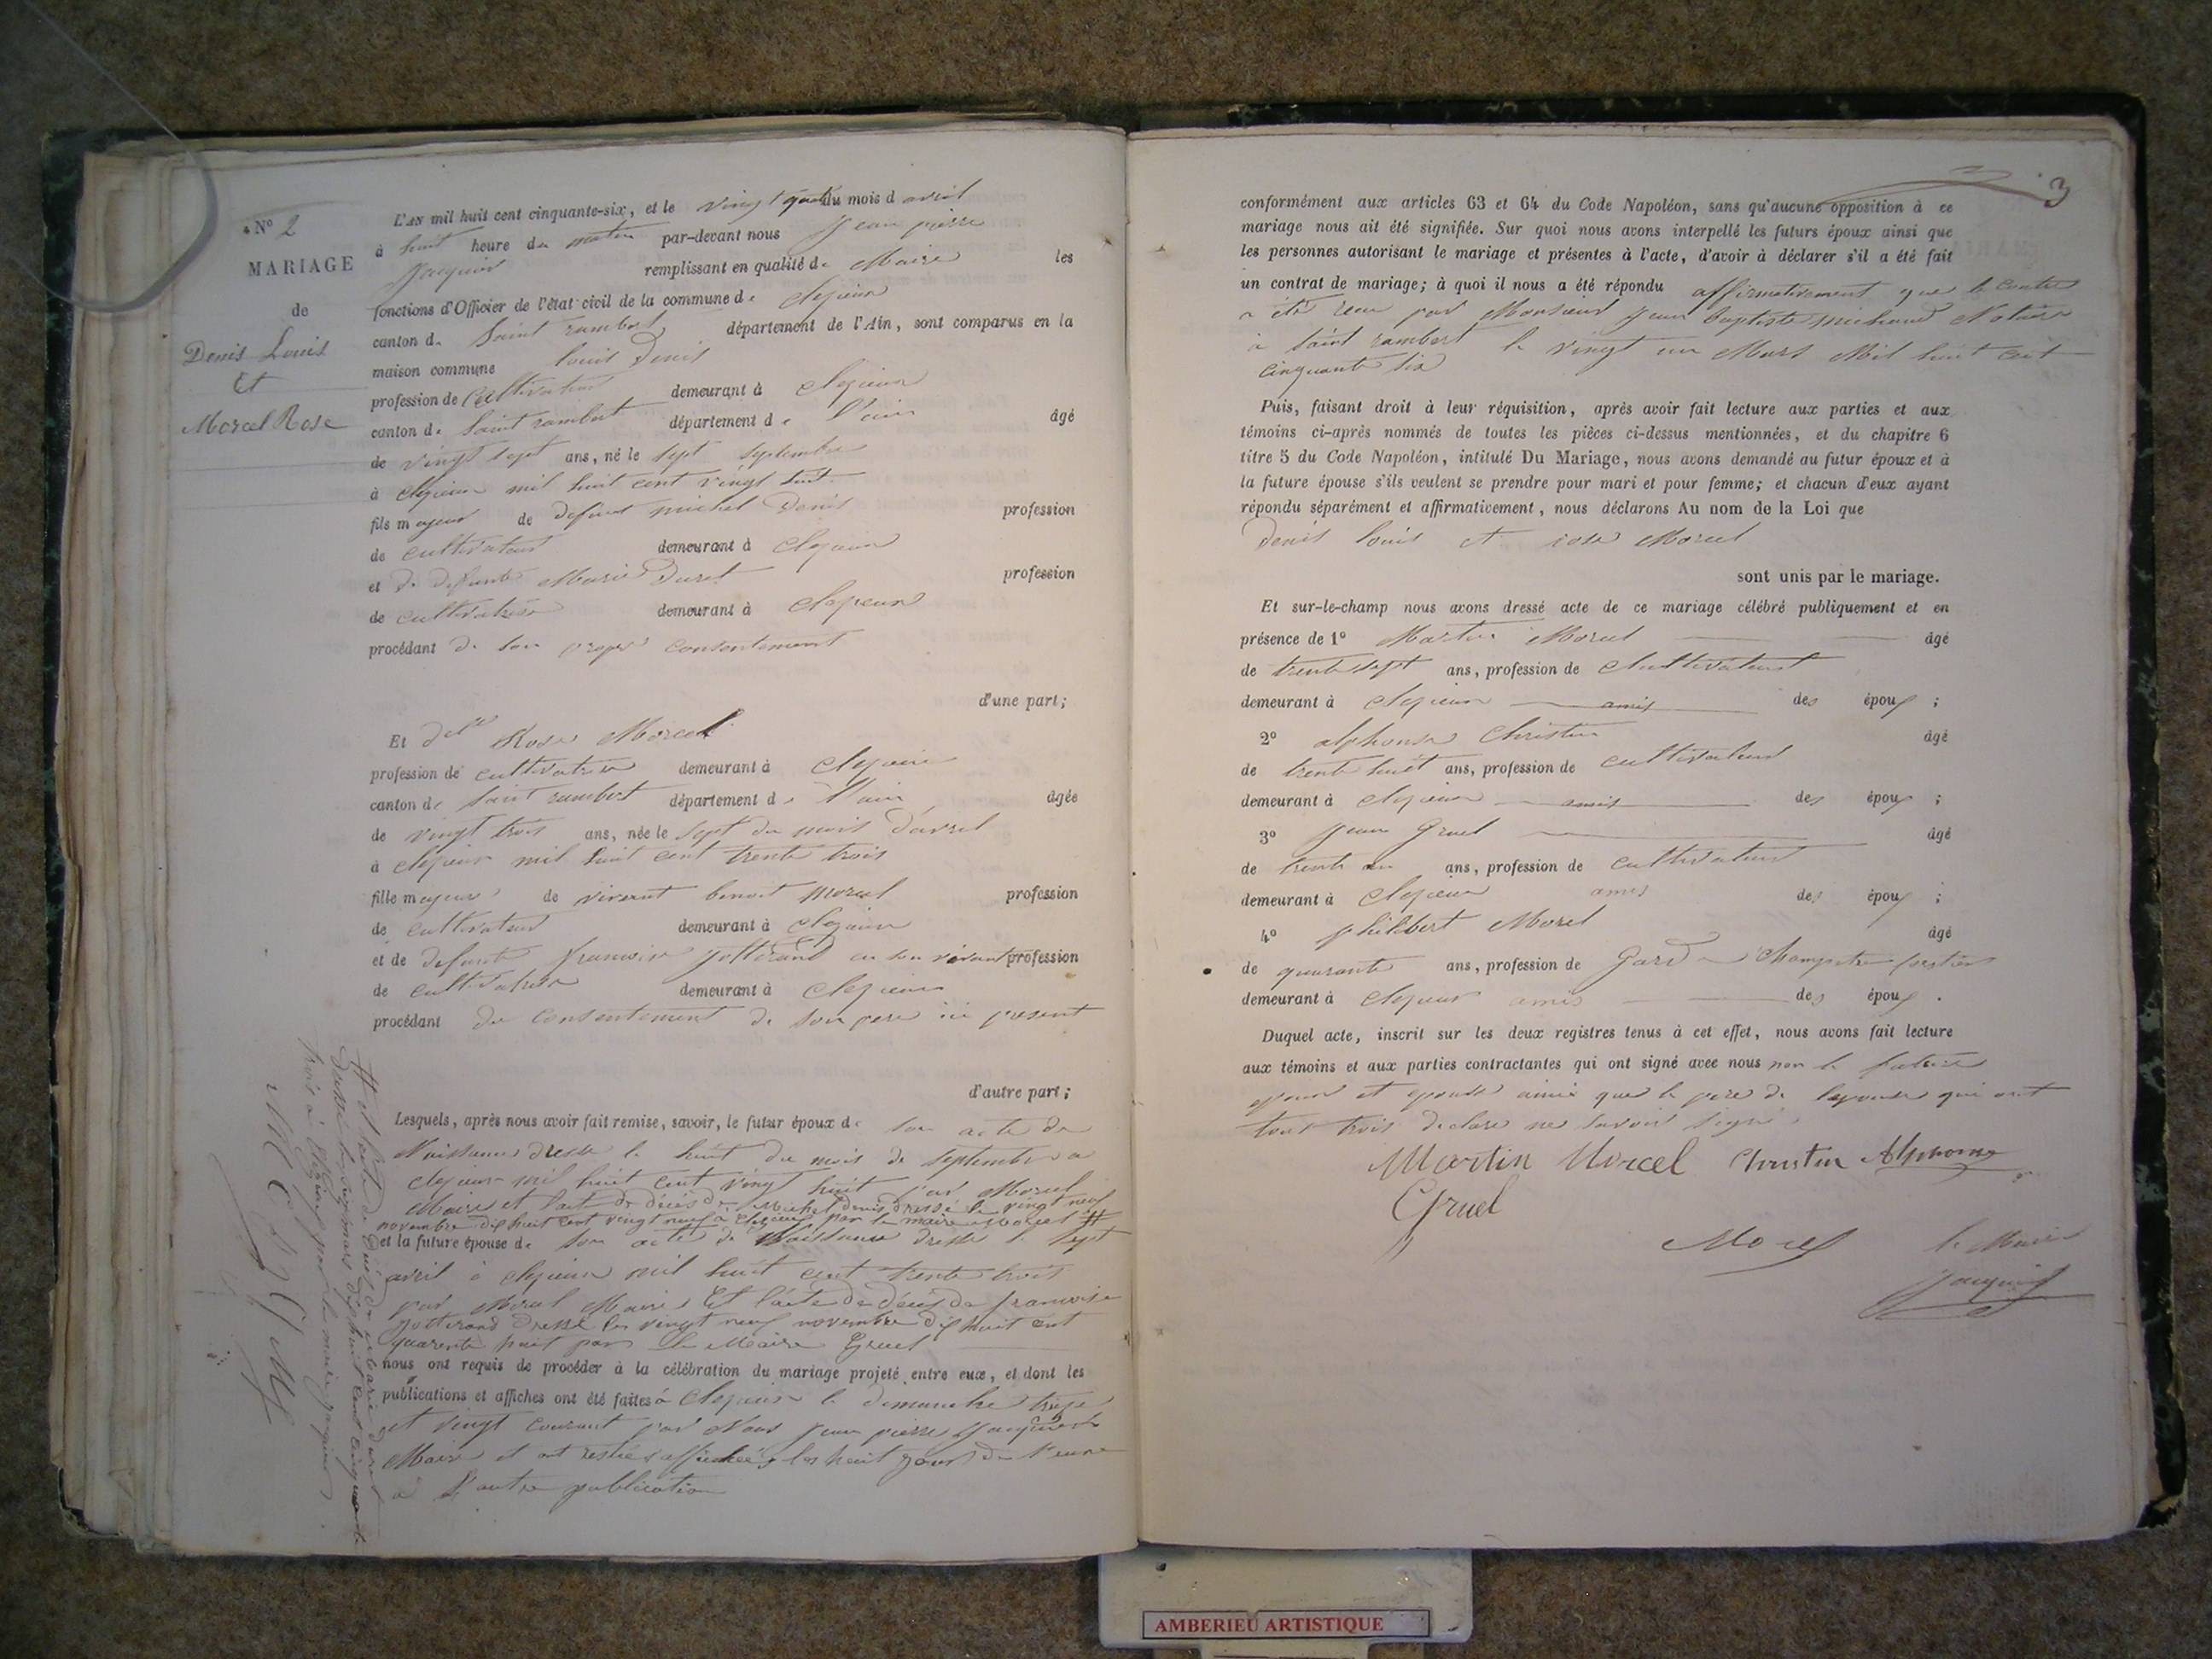 N° 2
MARIAGE
de
Denis Louis
Et
Morcel Rose
L'AN mil huit cent cinquante-six, et le vingt quatre du mois d avril
à huit heure du matin par-devant nous Jean pierre
Jacquin remplissant en qualité de Maire les
fonctions d'Officier de l'état civil de la commune de Clezieux
canton de Saint rambert département de l'Ain, sont comparus en la
maison commune louis Denis
profession de Cultivateur demeurant à Clezieux
canton de Saint rambert département de l'ain âgé
de vingt sept ans, né le sept septembre
à Clezieux mil huit cent vingt huit
fils majeur de defunt michel Denis profession
de cultivateur demeurant à Clezieux
et de defunte Marie Duret profession
de cultivatrice demeurant à Clezieux
procédant de son propre consentement
d'une part;
Et delle Rose Morcel
profession de cultivatrice demeurant à Clezieux
canton de Saint rambert département de l'ain âgée
de vingt trois ans, née le sept du mois d'avril
à clezieux mil huit cent trente trois
fille majeure de vivant benoit morcel profession
de cultivateur demeurant à clezieux
et de defunte francoise Jotterand en son vivant profession
de cultivatrice demeurant à Clezieux
procédant du consentement de son pere ici present
d'autre part;
Lesquels, après nous avoir fait remise, savoir, le futur époux de son acte de
Naissance dressé le huit du mois de septembre a
clezieux mil huit cent vingt huit par Morcel
Maire et l'acte de décès de Michel Denis dressé le vingt neuf
novembre dix huit cent vingt neuf à Clezieux par le maire Morcel #
et la future épouse de son acte de Naissance dressé le sept
avril à clezieux mil huit cent trente trois
par Morcel Maire Et l'acte de décès de francoise
Jotterand dressé le vingt neuf novembre dix huit cent
quarante huit par le Maire Gruel
nous ont requis de procéder à la célébration du mariage projeté entre eux, et dont les
publications et affiches ont été faites à Clezieux le dimanche treize
et vingt courant par Nous Jean pierre Jacquin
Maire et ont restées affichées les huit jours de l'une
a l'autre publication
# et l'acte de décès de marie duret
dressé le mars dix huit cent cinquante
trois à Clezieux par le maire Jacquin
M G M
3
conformément aux articles 63 et 64 du Code Napoléon, sans qu'aucune opposition à ce
mariage nous ait été signifiée. Sur quoi nous avons interpellé les futurs époux ainsi que
les personnes autorisant le mariage et présentes à l'acte, d'avoir à déclarer s'il a été fait
un contrat de mariage; à quoi il nous a été répondu affirmativement que le contrat
a été recu par Monsieur Jean baptiste michaud Notaire
a saint rambert le vingt un Mars Mil huit cent
cinquante six
Puis, faisant droit à leur réquisition, après avoir fait lecture aux parties et aux
témoins ci-après nommés de toutes les pièces ci-dessus mentionnées, et du chapitre 6
titre 5 du Code Napoléon, intitulé Du Mariage, nous avons demandé au futur époux et à
la future épouse s'ils veulent se prendre pour mari et pour femme; et chacun d'eux ayant
répondu séparément et affirmativement, nous déclarons Au nom de la Loi que
Denis louis et rose Morcel
sont unis par le mariage.
Et sur-le-champ nous avons dressé acte de ce mariage célébré publiquement et en
présence de 1° Martin Morcel âgé
de trente sept ans, profession de Cultivateur
demeurant à Clezieux amis des époux ;
2° alphonse Christin âgé
de trente huit ans, profession de cultivateur
demeurant à clezieux amis des époux ;
3° Jean Gruel âgé
de trente un ans, profession de cultivateur
demeurant à Clezieux amis des époux ;
4° philibert Morel âgé
de quarante ans, profession de Garde Champetre forestier
demeurant à Clezieux amis des époux .
Duquel acte, inscrit sur les deux registres tenus à cet effet, nous avons fait lecture
aux témoins et aux parties contractantes qui ont signé avec nous non le future
epoux et epouse ainsi que le pere de lepouse qui ont
tout trois declare ne savoir signé
Martin Morcel Christin Alphonse
Gruel
Morel le Maire
Jacquin
AMBERIEU ARTISTIQUE